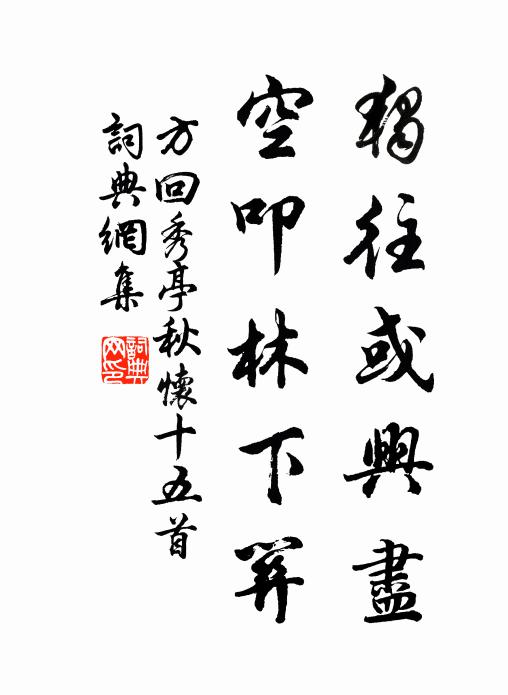 獨往或興盡
空叩林下關
方回秀亭秋懷十五首
詞典網集
詞典网印